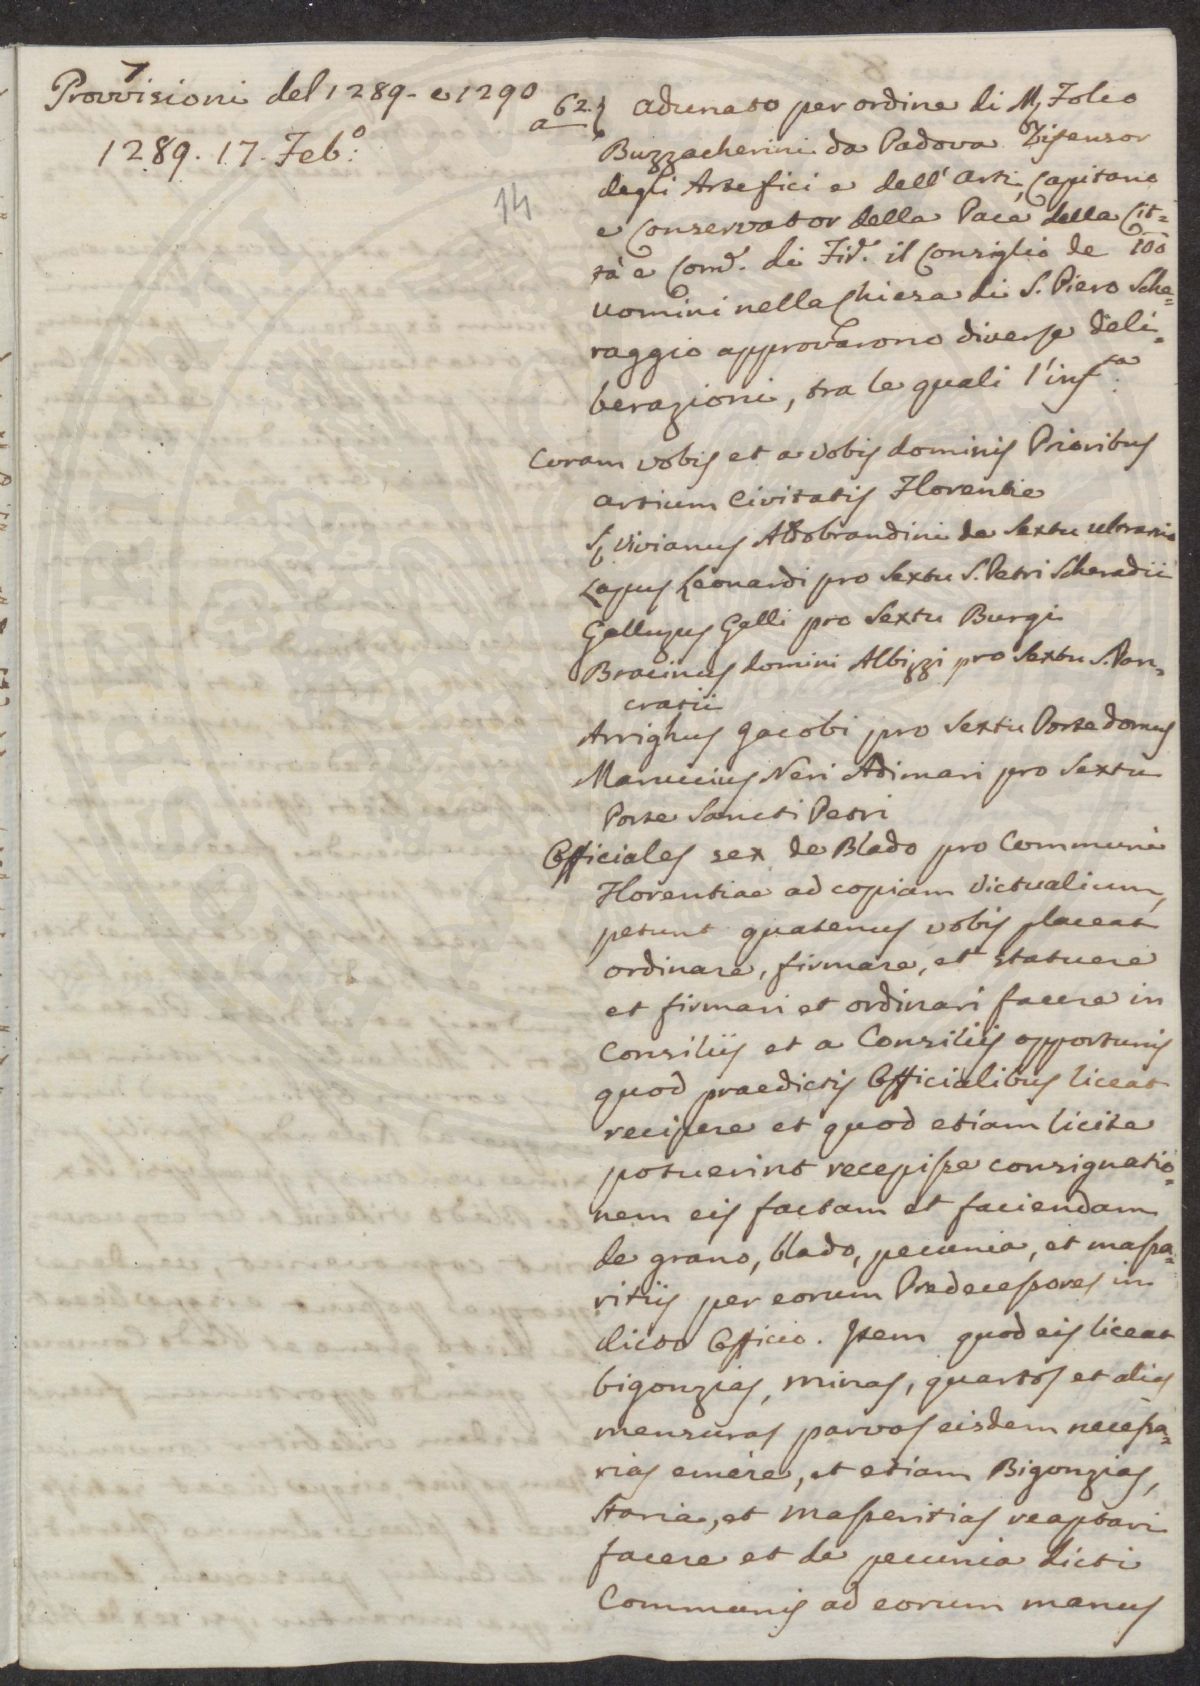 7
Provvisioni del 1289. e 1290
1289. 17. Feb:º
14
a 62. } adunato per ordine di M. Folco
Buzzacherini da Padova Difensor
degli Artefici e dell' arti, Capitano
e Conservator della Pace della Cit=
tà e Com.e di Fir.e il Consiglio de 100
uomini nella Chiesa di S. Piero Sche=
raggio approvarono diverse deli=
berazioni, tra le quali l'inf.ta
Coram vobis et a vobis dominis Prioribus
artium Civitatis Florentie
S. Vivianus Aldobrandini de Sextu ultrarni
Lapus Leonardi pro Sextu S. Petri Scheradii
Galluzus Gelli pro Sextu Burgi
Bracinus domini Albizzi pro Sextu S. Pan=
cratii
Arrighus Jacobi pro Sextu Porte domus
Maruccius Neri Adimari pro Sextu
Porte Sancti Petri
Officiales sex de Blado pro Communi
Florentiae ad copiam victualium,
petunt quatenus vobis placeat
ordinare, firmare, et statuere
et firmari et ordinari facere in
Consiliis et a Consiliis opportunis
quod praedictis Officialibus liceat
recipere et quod etiam licite
potuerint recepisse consignatio=
nem eis factam et faciendam
de grano, blado, pecunia, et massa=
ritiis per eorum Predecessores in
dicto Officio. Item quod eis liceat
bigonzias, minas, quartos et alias
mensuras parvas eisdem necessa=
rias emere, et etiam Bigonzias,
Staria, et masseritias reaptari
facere et de pecunia dicti
Communis ad eorum manus